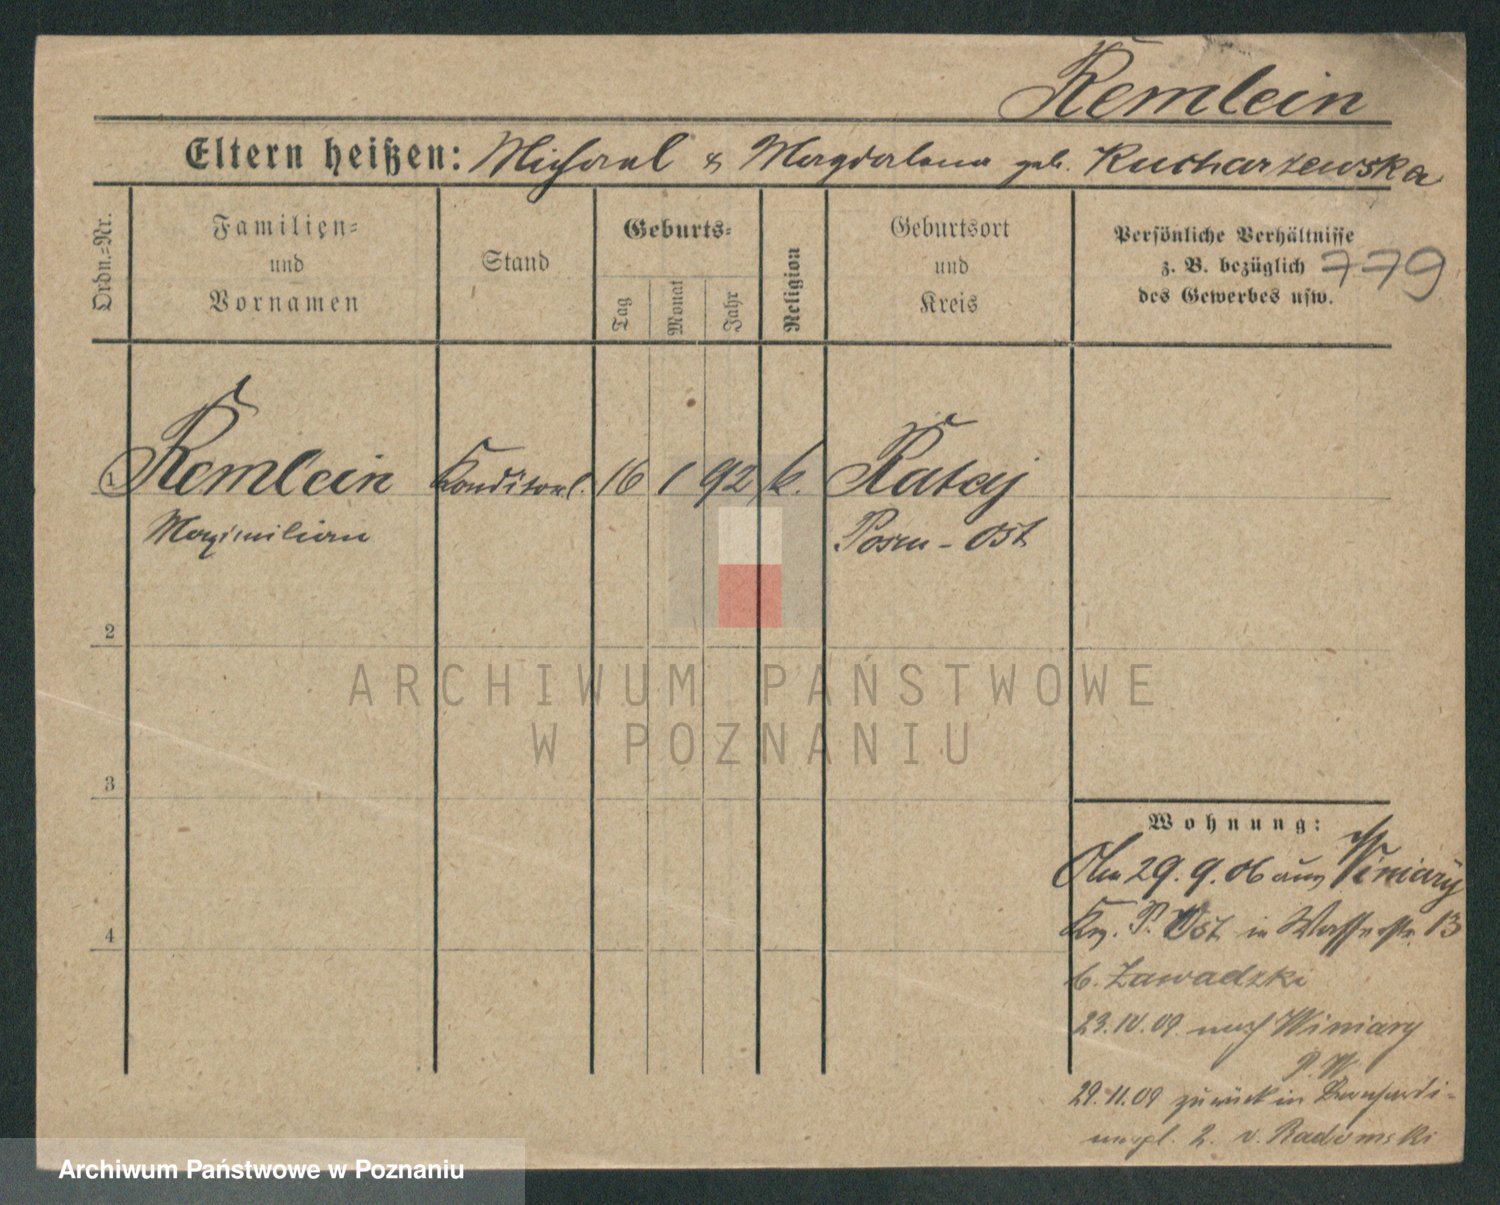 Remlein
Eltern heißen: Michael & Magdalena geb. Kucharzewska
Ordn.-Nr.
Familien-
und
Vornamen
Stand
Geburts-
Tag
Monat
Jahr
Religion
Geburtsort
und
Kreis
Persönliche Verhältnisse
z. B. bezüglich
des Gewerbes usw.
779
1 Remlein Konditorl. 16 1 92 k. Rataj
Maximilian Posen-Ost
2
3
4
ARCHIWUM PAŃSTWOWE
W POZNANIU
Wohnung:
29.9.06 aus Winiary
Kr. P. Ost in Wasserstr. 13
b. Zawadzki
23.IV.09 nach Winiary
P.W.
29.11.09 zurück in Bernhardi-
nerpl. 2. v. Radomski
Archiwum Państwowe w Poznaniu